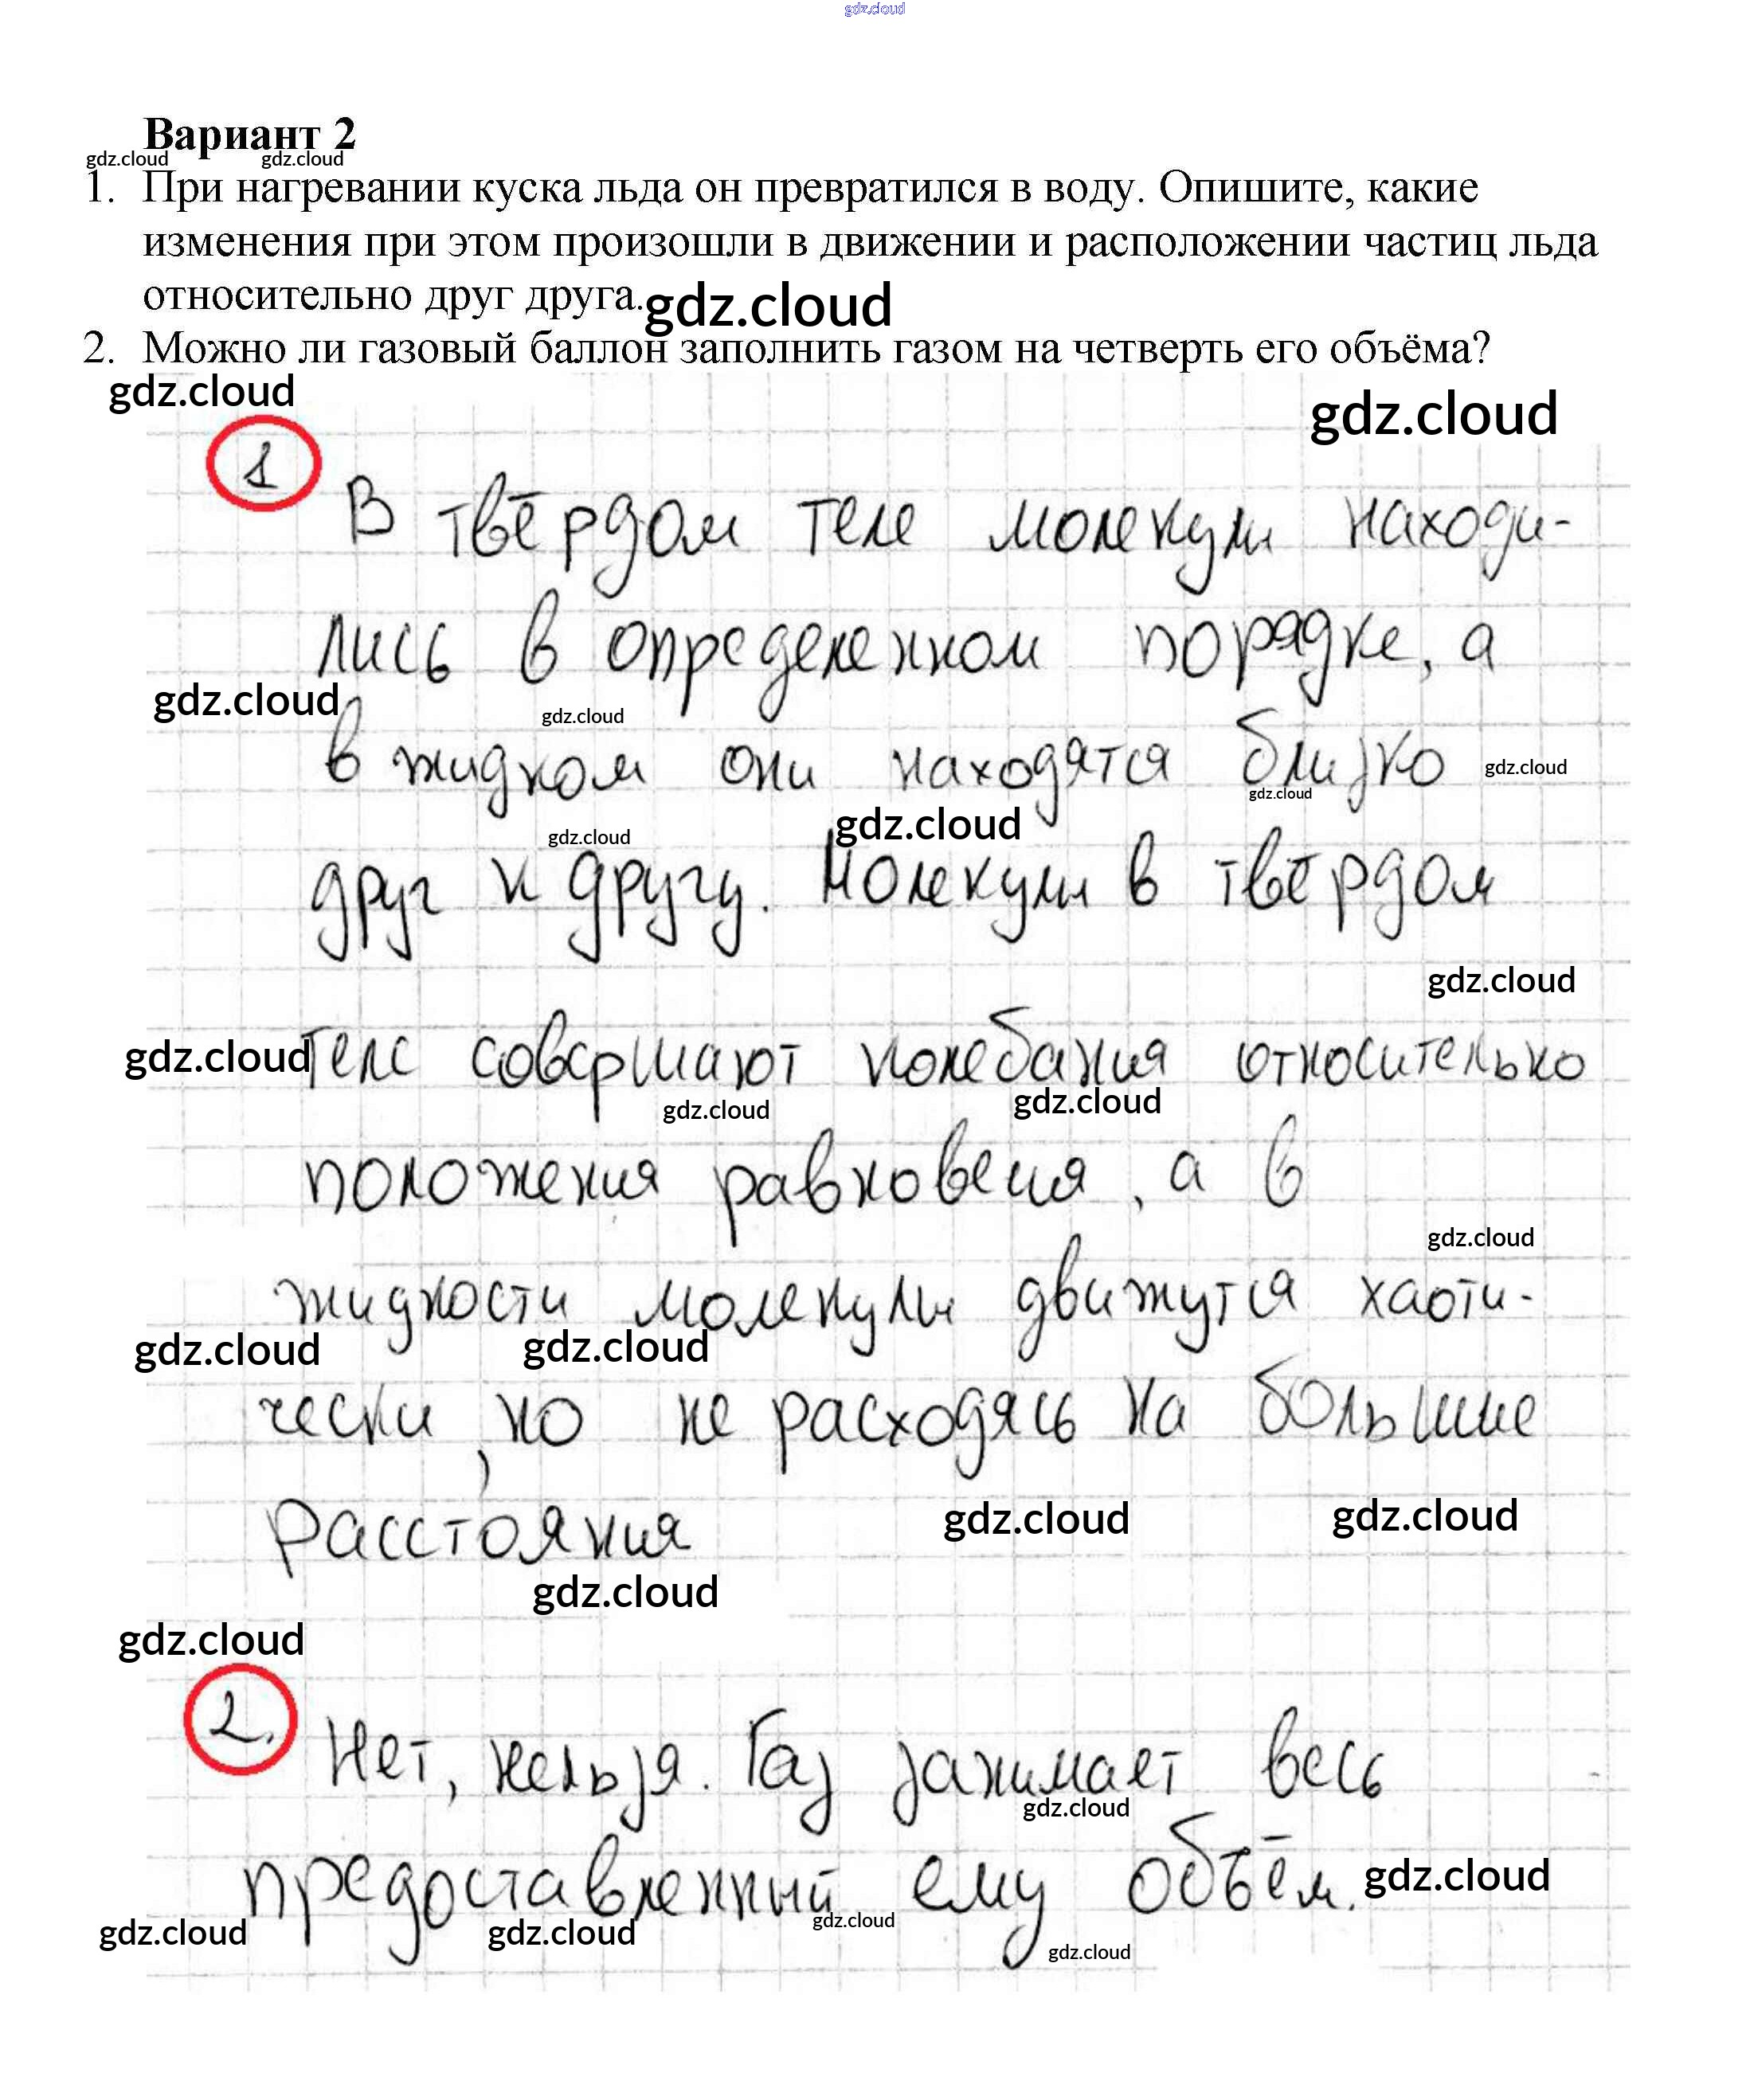 gdz.cloud
Вариант 2
gdz.cloud gdz.cloud
1. При нагревании куска льда он превратился в воду. Опишите, какие
изменения при этом произошли в движении и расположении частиц льда
относительно друг друга. gdz.cloud
2. Можно ли газовый баллон заполнить газом на четверть его объёма?
gdz.cloud gdz.cloud
1
В твёрдом теле молекулы находи-
лись в определенном порядке, а
gdz.cloud gdz.cloud
в жидком они находятся близко gdz.cloud
gdz.cloud
gdz.cloud gdz.cloud
друг к другу. Молекулы в твёрдом
gdz.cloud
gdz.cloud теле совершают колебания относительно
gdz.cloud gdz.cloud
положения равновесия, а в
gdz.cloud
жидкости молекулы движутся хаоти-
gdz.cloud gdz.cloud
чески, но не расходясь на большие
расстояния gdz.cloud gdz.cloud
gdz.cloud
gdz.cloud
2. Нет, нельзя. Газ занимает весь
gdz.cloud
предоставленный ему объём. gdz.cloud
gdz.cloud gdz.cloud gdz.cloud
gdz.cloud